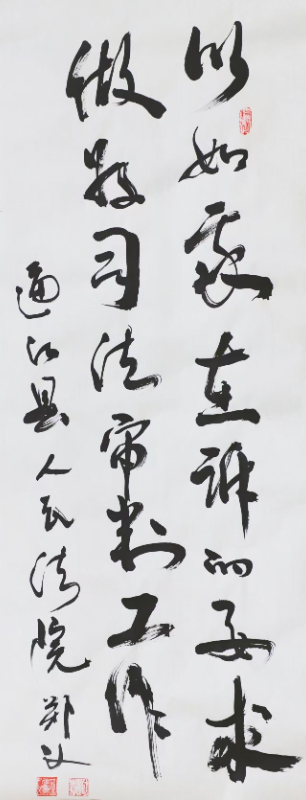 以如我在诉的要求
做好司法审判工作
通江县人民法院 郑